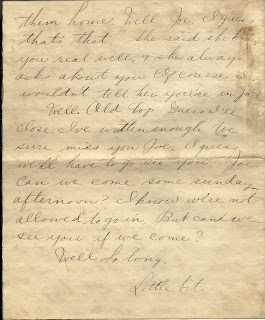 them home. Well Joe, I guess
that's that. She said she
you real well, & she always
asks about you. Of course I
wouldn't tell her you're in
Well Old top Guess I'll
close, I've written enough. We
sure miss you Joe, I guess
we'll have to go see you. Joe
can we come some sunday
afternoon? I know we're not
allowed to go in. But cant we
see you if we come?
Well So long.
Little